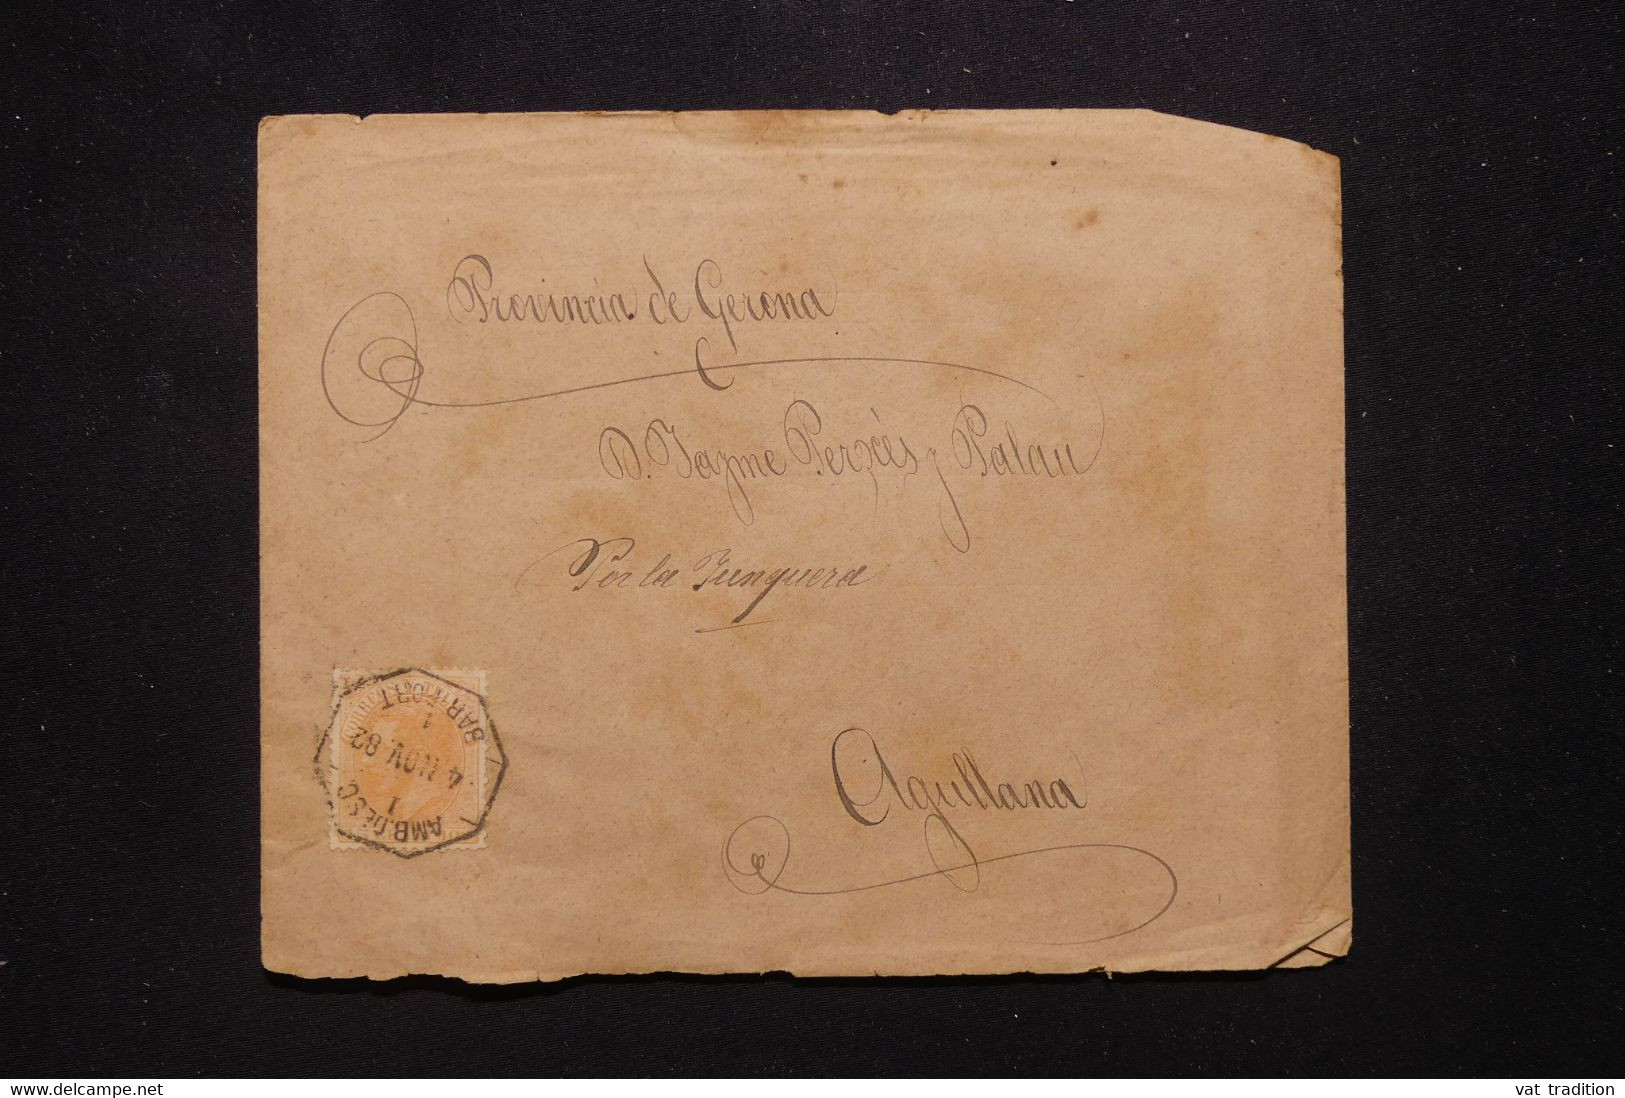 Provincia de Gerona
D. Jayme Perxés y Palau
Por la Junquera
Agullana
BAR-PORT
1
4 NOV. 82
1
AMB. DESC
www.delcampe.net
vat tradition